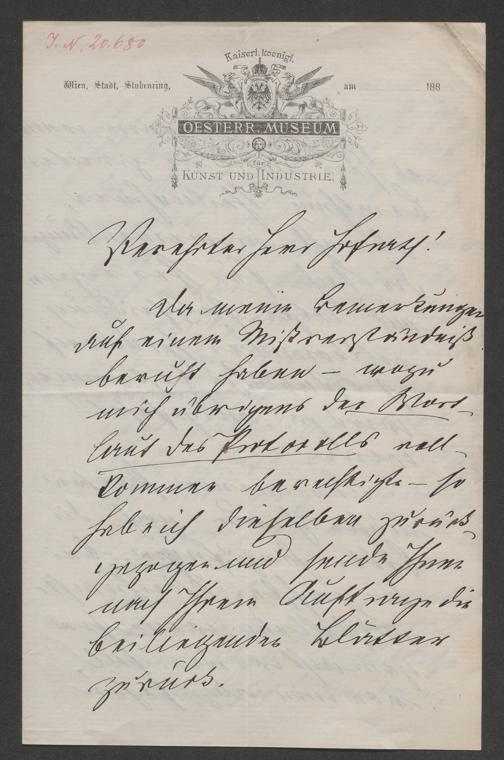 J. N. 20.680
Kaiserl. koenigl.
Wien, Stadt, Stubenring, am 188
OESTERR. MUSEUM
für
KUNST UND INDUSTRIE.
Verehrter Herr Hofrath!
Da meine Bemerkungen
auf einem Mißverständniß
beruht haben – wozu
mich übrigens der Wort-
laut des Protocolls voll-
kommen berechtigte – so
habe ich dieselben zurück-
gezogen und sende Ihnen
nach Ihrem Auftrage die
beiliegenden Blätter
zurück.